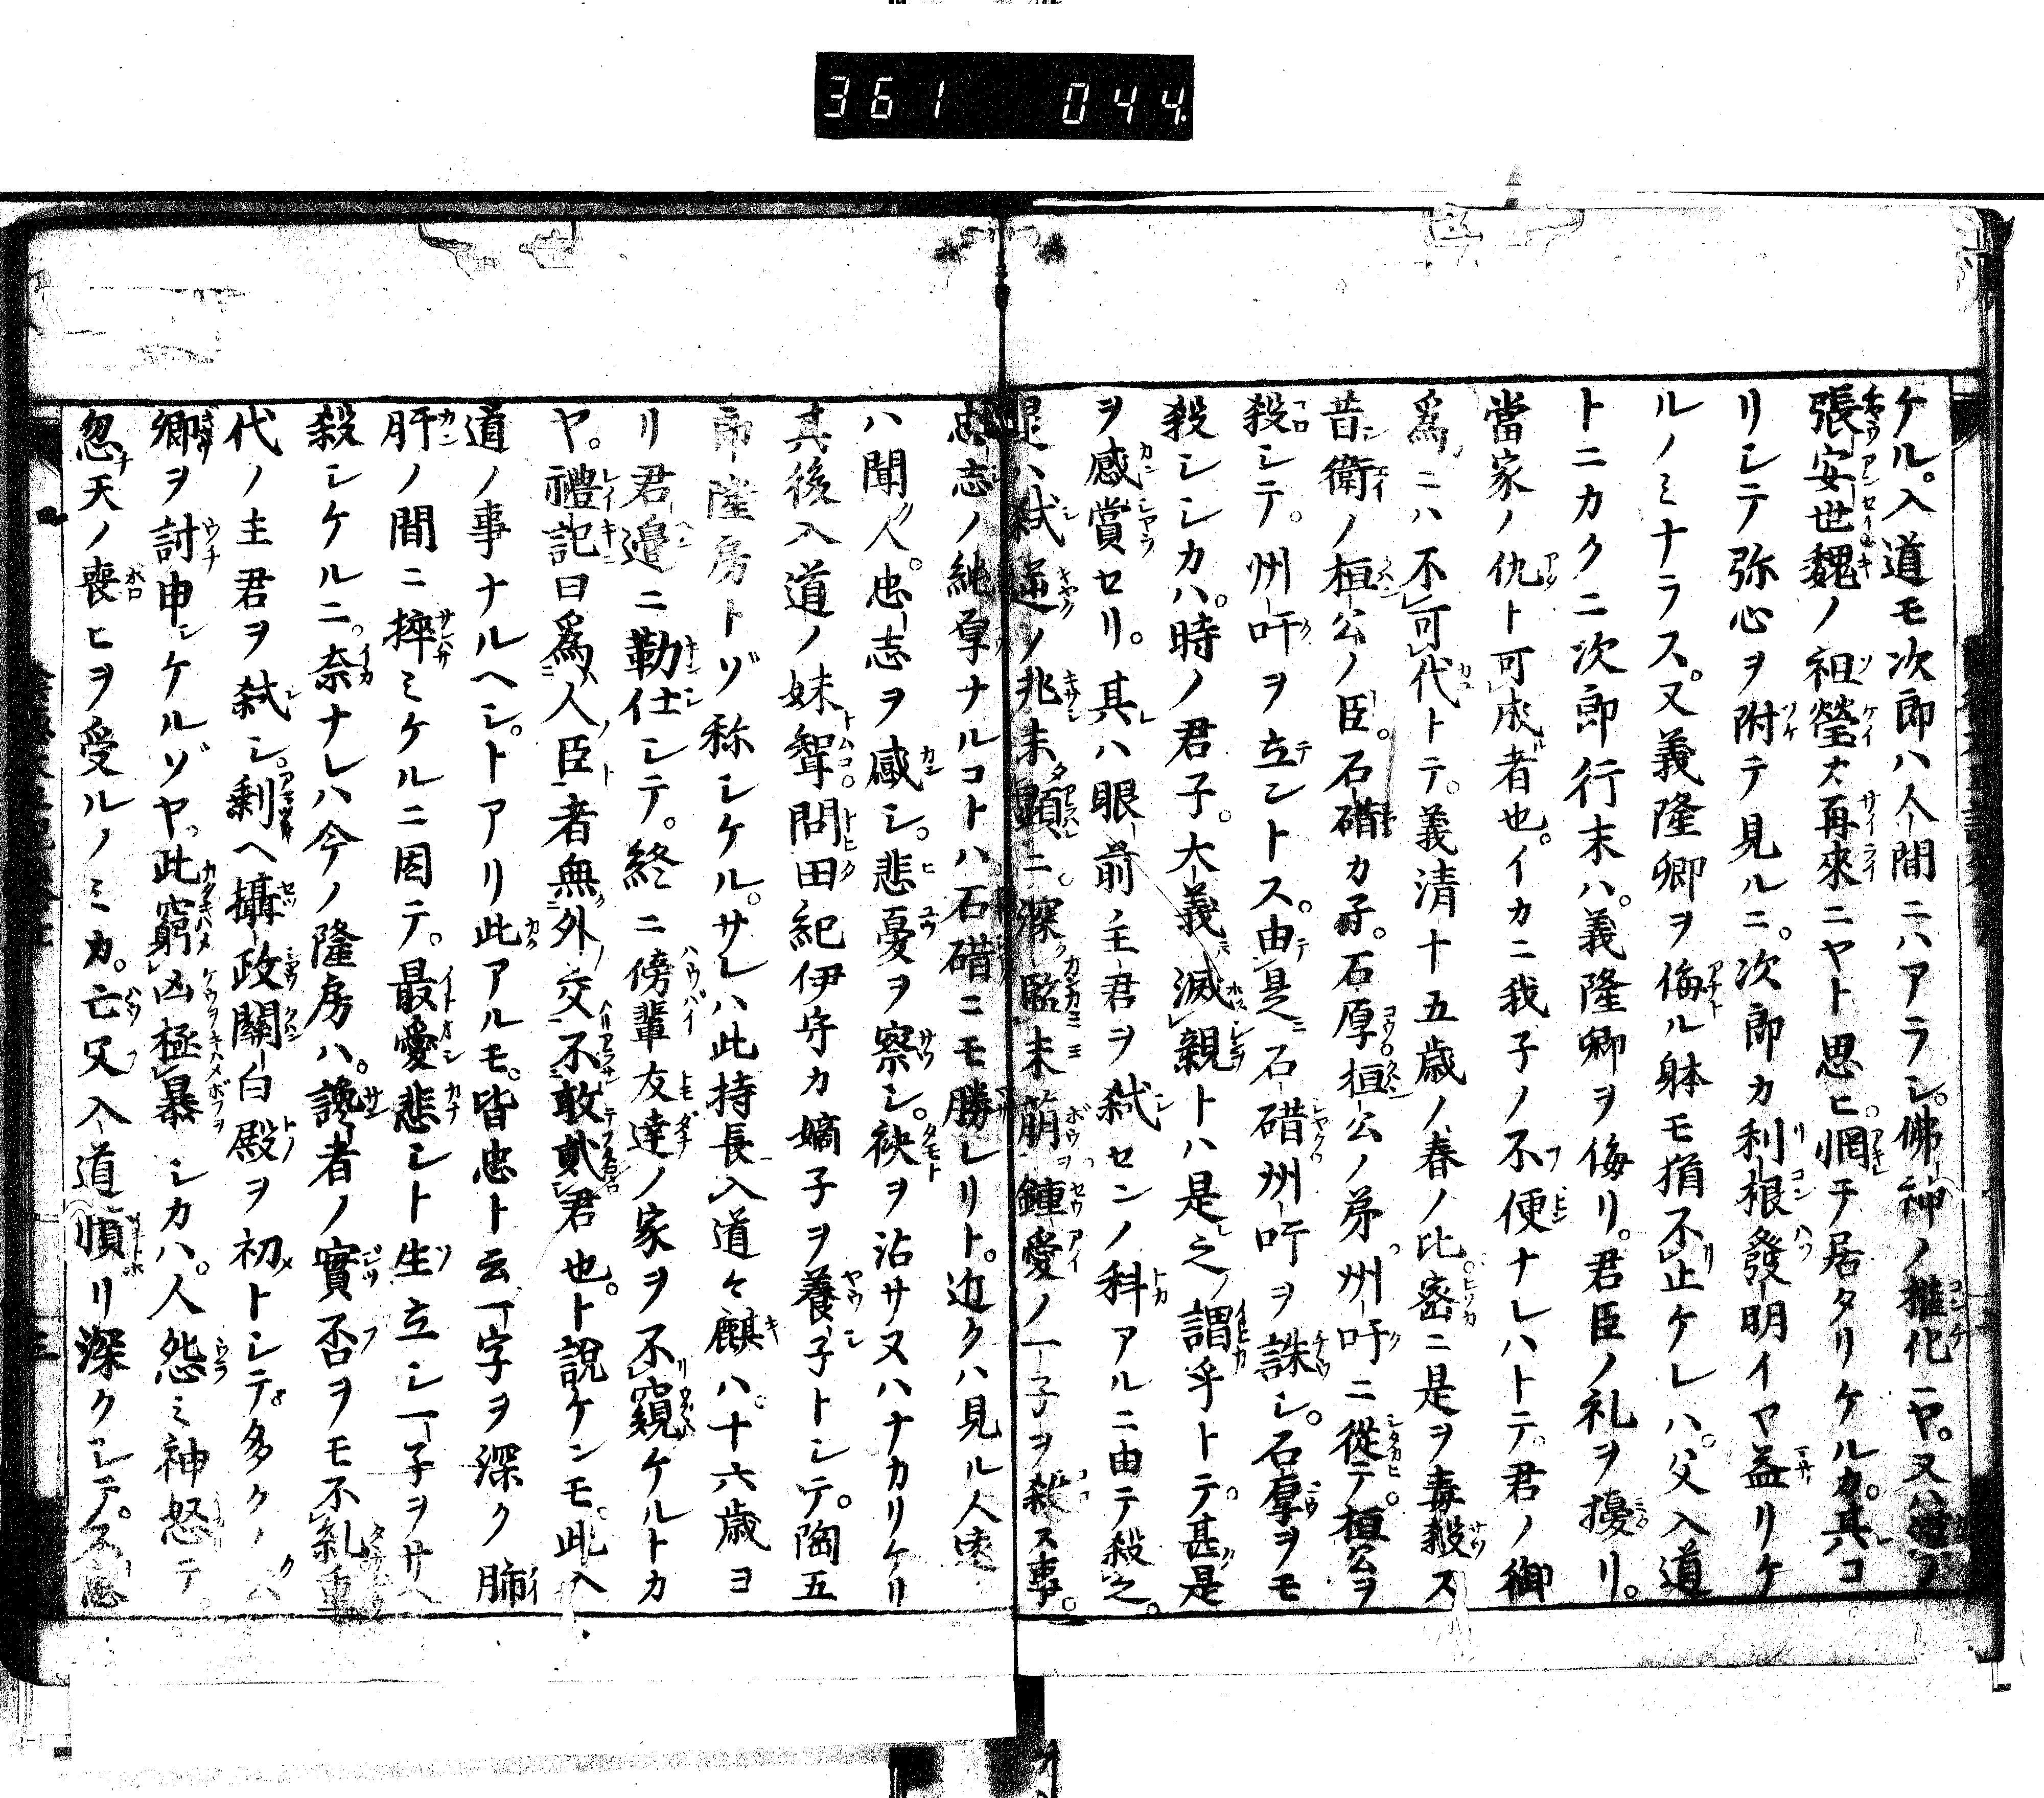 361 044
ケル。入道モ次郎ハ人間ニハアラシ。佛神ノ権化ニヤ。又
張安世魏ノ祖瑩カ再來ニヤト思ヒ。惘テ居タリケルカ。其コ
リシテ弥心ヲ附テ見ルニ。次郎カ利根發明イヤ益リケ
ルノミナラス。又義隆卿ヲ侮ル躰モ猶不止ケレハ。父入道
トニカクニ次郎行末ハ。義隆卿ヲ侮リ。君臣ノ礼ヲ擾リ。
當家ノ仇ト可成者也。イカニ我子ノ不便ナレハトテ。君ノ御
爲ニハ不可代トテ。義清十五歳ノ春ノ比。密ニ是ヲ毒殺ス
昔衛ノ桓公ノ臣。石碏カ子。石厚桓公ノ弟。州吁ニ從テ。桓公ヲ
殺シテ。州吁ヲ立ントス。由是石碏州吁ヲ誅シ。石厚ヲモ
殺シシカハ。時ノ君子。大義滅親トハ是之謂乎トテ。甚是
ヲ感賞セリ。其ハ眼前主君ヲ弑センノ科アルニ由テ殺之。
是ハ弑逆ノ兆未顕ニ。深監未萠鍾愛ノ一子ヲ殺ス事。
忠志ノ純厚ナルコトハ石碏ニモ勝レリト。近クハ見ル人遠
ハ聞人。忠志ヲ感シ。悲憂ヲ察シ。袂ヲ沾サヌハナカリケリ
其後入道ノ妹聟。問田紀伊守カ嫡子ヲ養子トシテ。陶五
郎隆房トゾ称シケル。サレハ此持長入道々麒ハ。十六歳ヨ
リ君邉ニ勤仕シテ。終ニ傍輩友達ノ家ヲ不窺ケルトカ
ヤ。禮記曰爲人臣者無外交不敢貳君也。ト説ケンモ。此入
道ノ事ナルヘシ。トアリ此アルモ。皆忠ト云一字ヲ深ク肺
肝ノ間ニ挿ミケルニ因テ。最愛悲シト生立シ一子ヲサヘ
殺シケルニ。奈ナレハ今ノ隆房ハ。讒者ノ實否ヲモ不糺重
代ノ主君ヲ弑シ。剰ヘ攝政關白殿ヲ初トシテ。多クノ
卿ヲ討申シケルゾヤ。此窮凶極暴シカハ。人怨ミ神怒テ
忽天ノ喪ヒヲ受ルノミカ。亡父入道憤リ深クシテ。